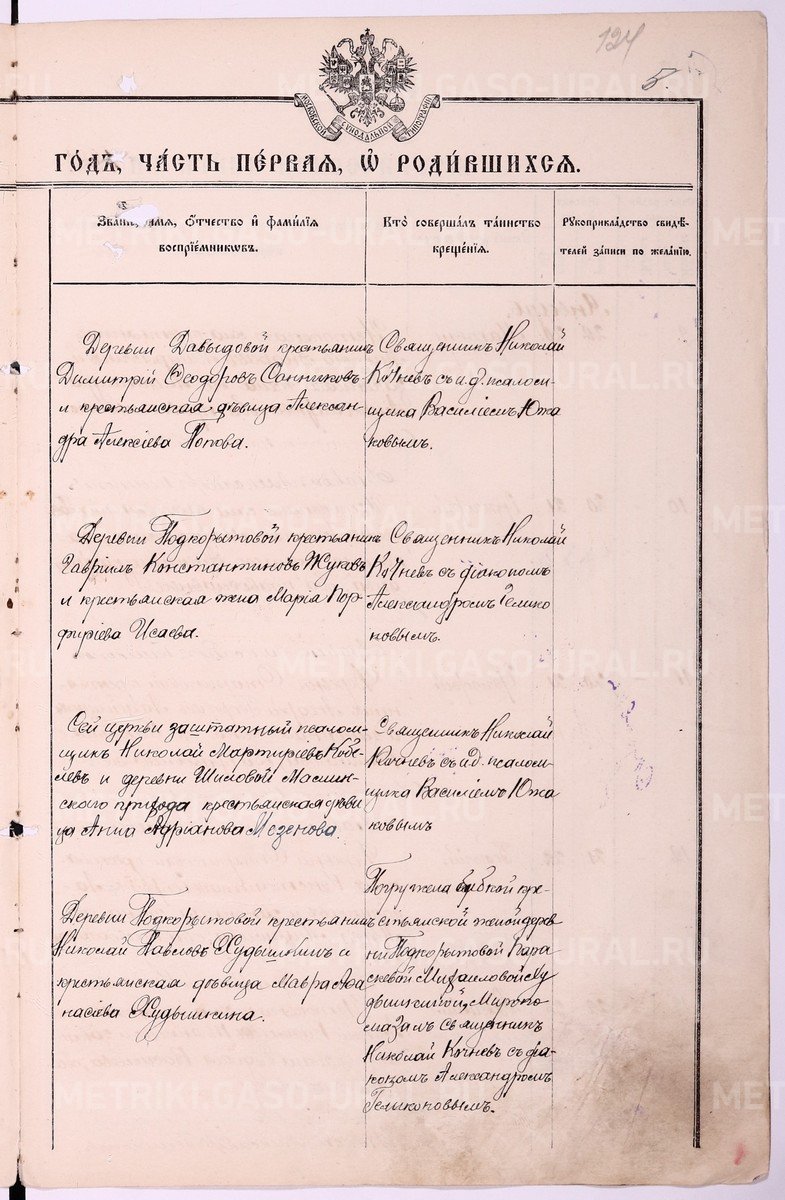 124
5.
МОСКОВСКОЙ СУНОДАЛЬНОЙ ТИПОГРАФІИ
ГО́ДЪ, ЧА́СТЬ ПЕ́РВАЯ, Ѡ҆ РОДИ́ВШИХСЯ.
Зва́ніе, и҆́мя, ѻ҆́тчество и҆ фами́лїя
воспріе́мниковъ.
Кто̀ соверша́лъ та́инство
креще́нїя.
Рꙋкоприкла́дство свидѣ́-
телей за́писи по жела́нїю.
Деревни Давыдовой крестьянинъ
Димитрій Ѳеодоровъ Санниковъ
и крестьянская дѣвица Алексан-
дра Алексіева Попова.
Священникъ Николай
Кочневъ съ и. д. псалом-
щика Василіемъ Южа
ковымъ.
Деревни Подкорытовой крестьянинъ
Гавріилъ Константиновъ Жуковъ
и крестьянская жена Марія Пор-
фиріева Исаева.
Священникъ Николай
Кочневъ съ діакономъ
Александромъ Гелико
новымъ.
Сей церкви заштатный псалом-
щикъ Николай Мартиріевъ Кобе-
левъ и деревни Шиловой Маслян-
ского прихода крестьянская дѣви
ца Анна Адріанова Мезенова.
Священникъ Николай
Кочневъ съ и. д. псалом-
щика Василіемъ Южа
ковымъ
Деревни Подкорытовой крестьянинъ
Николай Павловъ Худышкинъ и
крестьянская дѣвица Мавра Аѳа
насіева Худышкина.
Погружена бабкой кре-
стьянской женой дерев
ни Подкорытовой Пара
скевой Михаиловой Ху
дышкиной, Миропо
мазалъ священникъ
Николай Кочневъ съ діа-
кономъ Александромъ
Геликоновымъ.
METRIKI.GASO-URAL.RU